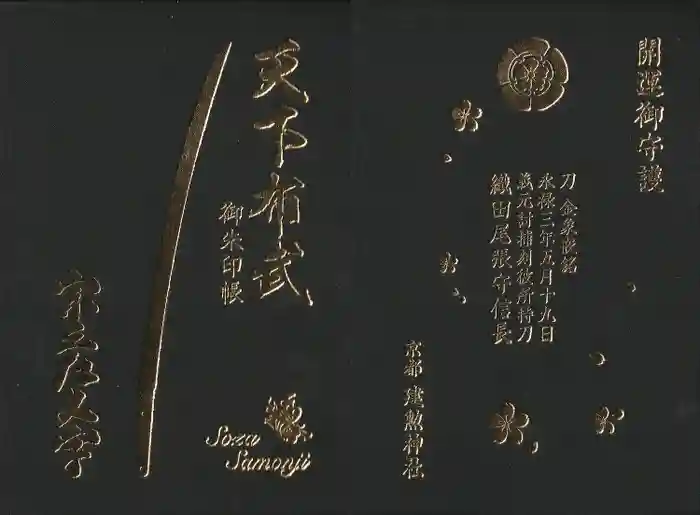 開運御守護
刀 金象嵌銘
永禄三年五月十九日
義元討捕刻彼所持刀
織田尾張守信長
京都 建勲神社
天下布武
御朱印帳
宗三左文字
Soza
Samonji